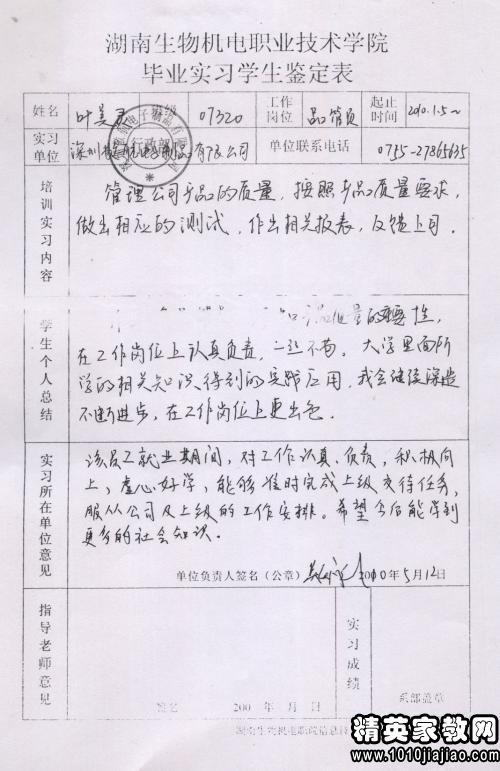 湖南生物机电职业技术学院
毕业实习学生鉴定表
姓名 叶美灵 班级 07320 工作岗位 品管员 起止时间 2010.1.5~
实习单位 深圳 有限公司 单位联系电话 0755-27865635
培训实习内容
管理公司产品的质量，按照产品质量要求，
做出相应的测试，作出相关报表，反馈上司．
学生个人总结
质量的重要性，
在工作岗位上认真负责，一丝不苟．大学里面所
学的相关知识得到的实践应用，我会继续深造
不断进步，在工作岗位上更出色．
实习所在单位意见
该员工就业期间，对工作认真、负责，积极向
上，虚心好学，能够准时完成上级交待任务，
服从公司及上级的工作安排。希望今后能学到
更多的社会知识．
单位负责人签名（公章） 2010年5月12日
指导老师意见
实习成绩
签名 200 年 月 日
系部盖章
湖南生物机电职院信息
精英家教网
www.1010jiajiao.com